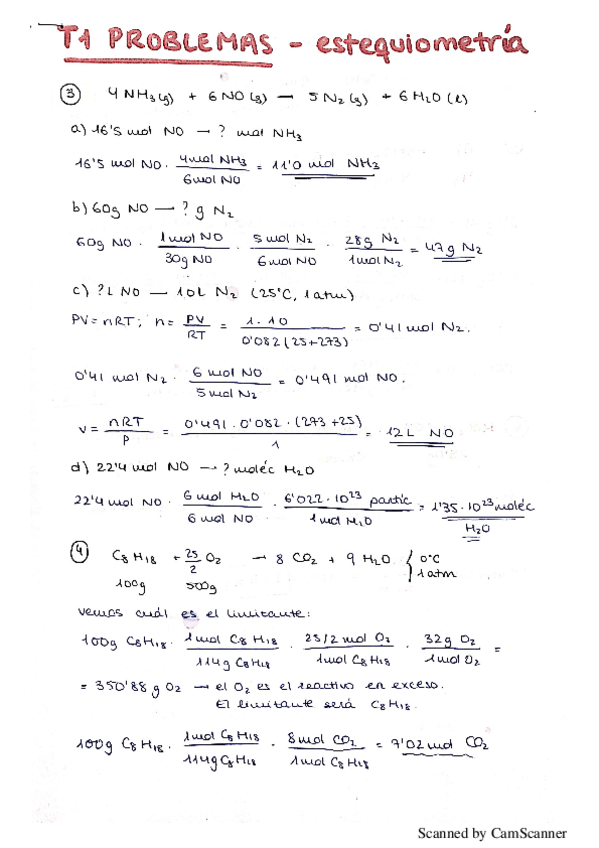 T1 PROBLEMAS - estequiometría
③ 4 NH₃(g) + 6 NO(g) → 5 N₂(g) + 6 H₂O(l)
a) 16'5 mol NO → ? mol NH₃
16'5 mol NO · 4mol NH₃ / 6mol NO = 11'0 mol NH₃
b) 60g NO → ? g N₂
60g NO · 1mol NO / 30g NO · 5 mol N₂ / 6mol NO · 28g N₂ / 1mol N₂ = 47g N₂
c) ?L NO — 10L N₂ (25°C, 1atm)
PV=nRT; n= PV / RT = 1·10 / 0'082(25+273) = 0'41 mol N₂.
0'41 mol N₂ · 6 mol NO / 5 mol N₂ = 0'491 mol NO.
V= nRT / P = 0'491·0'082·(273+25) / 1 = 12L NO
d) 22'4 mol NO → ? moléc H₂O
22'4 mol NO · 6 mol H₂O / 6 mol NO · 6'022·10²³ partíc / 1mol H₂O = 1'35·10²³ moléc H₂O
④ C₈H₁₈ + 25/2 O₂ → 8 CO₂ + 9 H₂O { 0°C 1atm
100g 500g
vemos cuál es el limitante:
100g C₈H₁₈ · 1mol C₈H₁₈ / 114g C₈H₁₈ · 25/2 mol O₂ / 1mol C₈H₁₈ · 32g O₂ / 1mol O₂ =
= 350'88 g O₂ → el O₂ es el reactivo en exceso.
El limitante será C₈H₁₈.
100g C₈H₁₈ · 1mol C₈H₁₈ / 114g C₈H₁₈ · 8mol CO₂ / 1mol C₈H₁₈ = 7'02 mol CO₂
Scanned by CamScanner